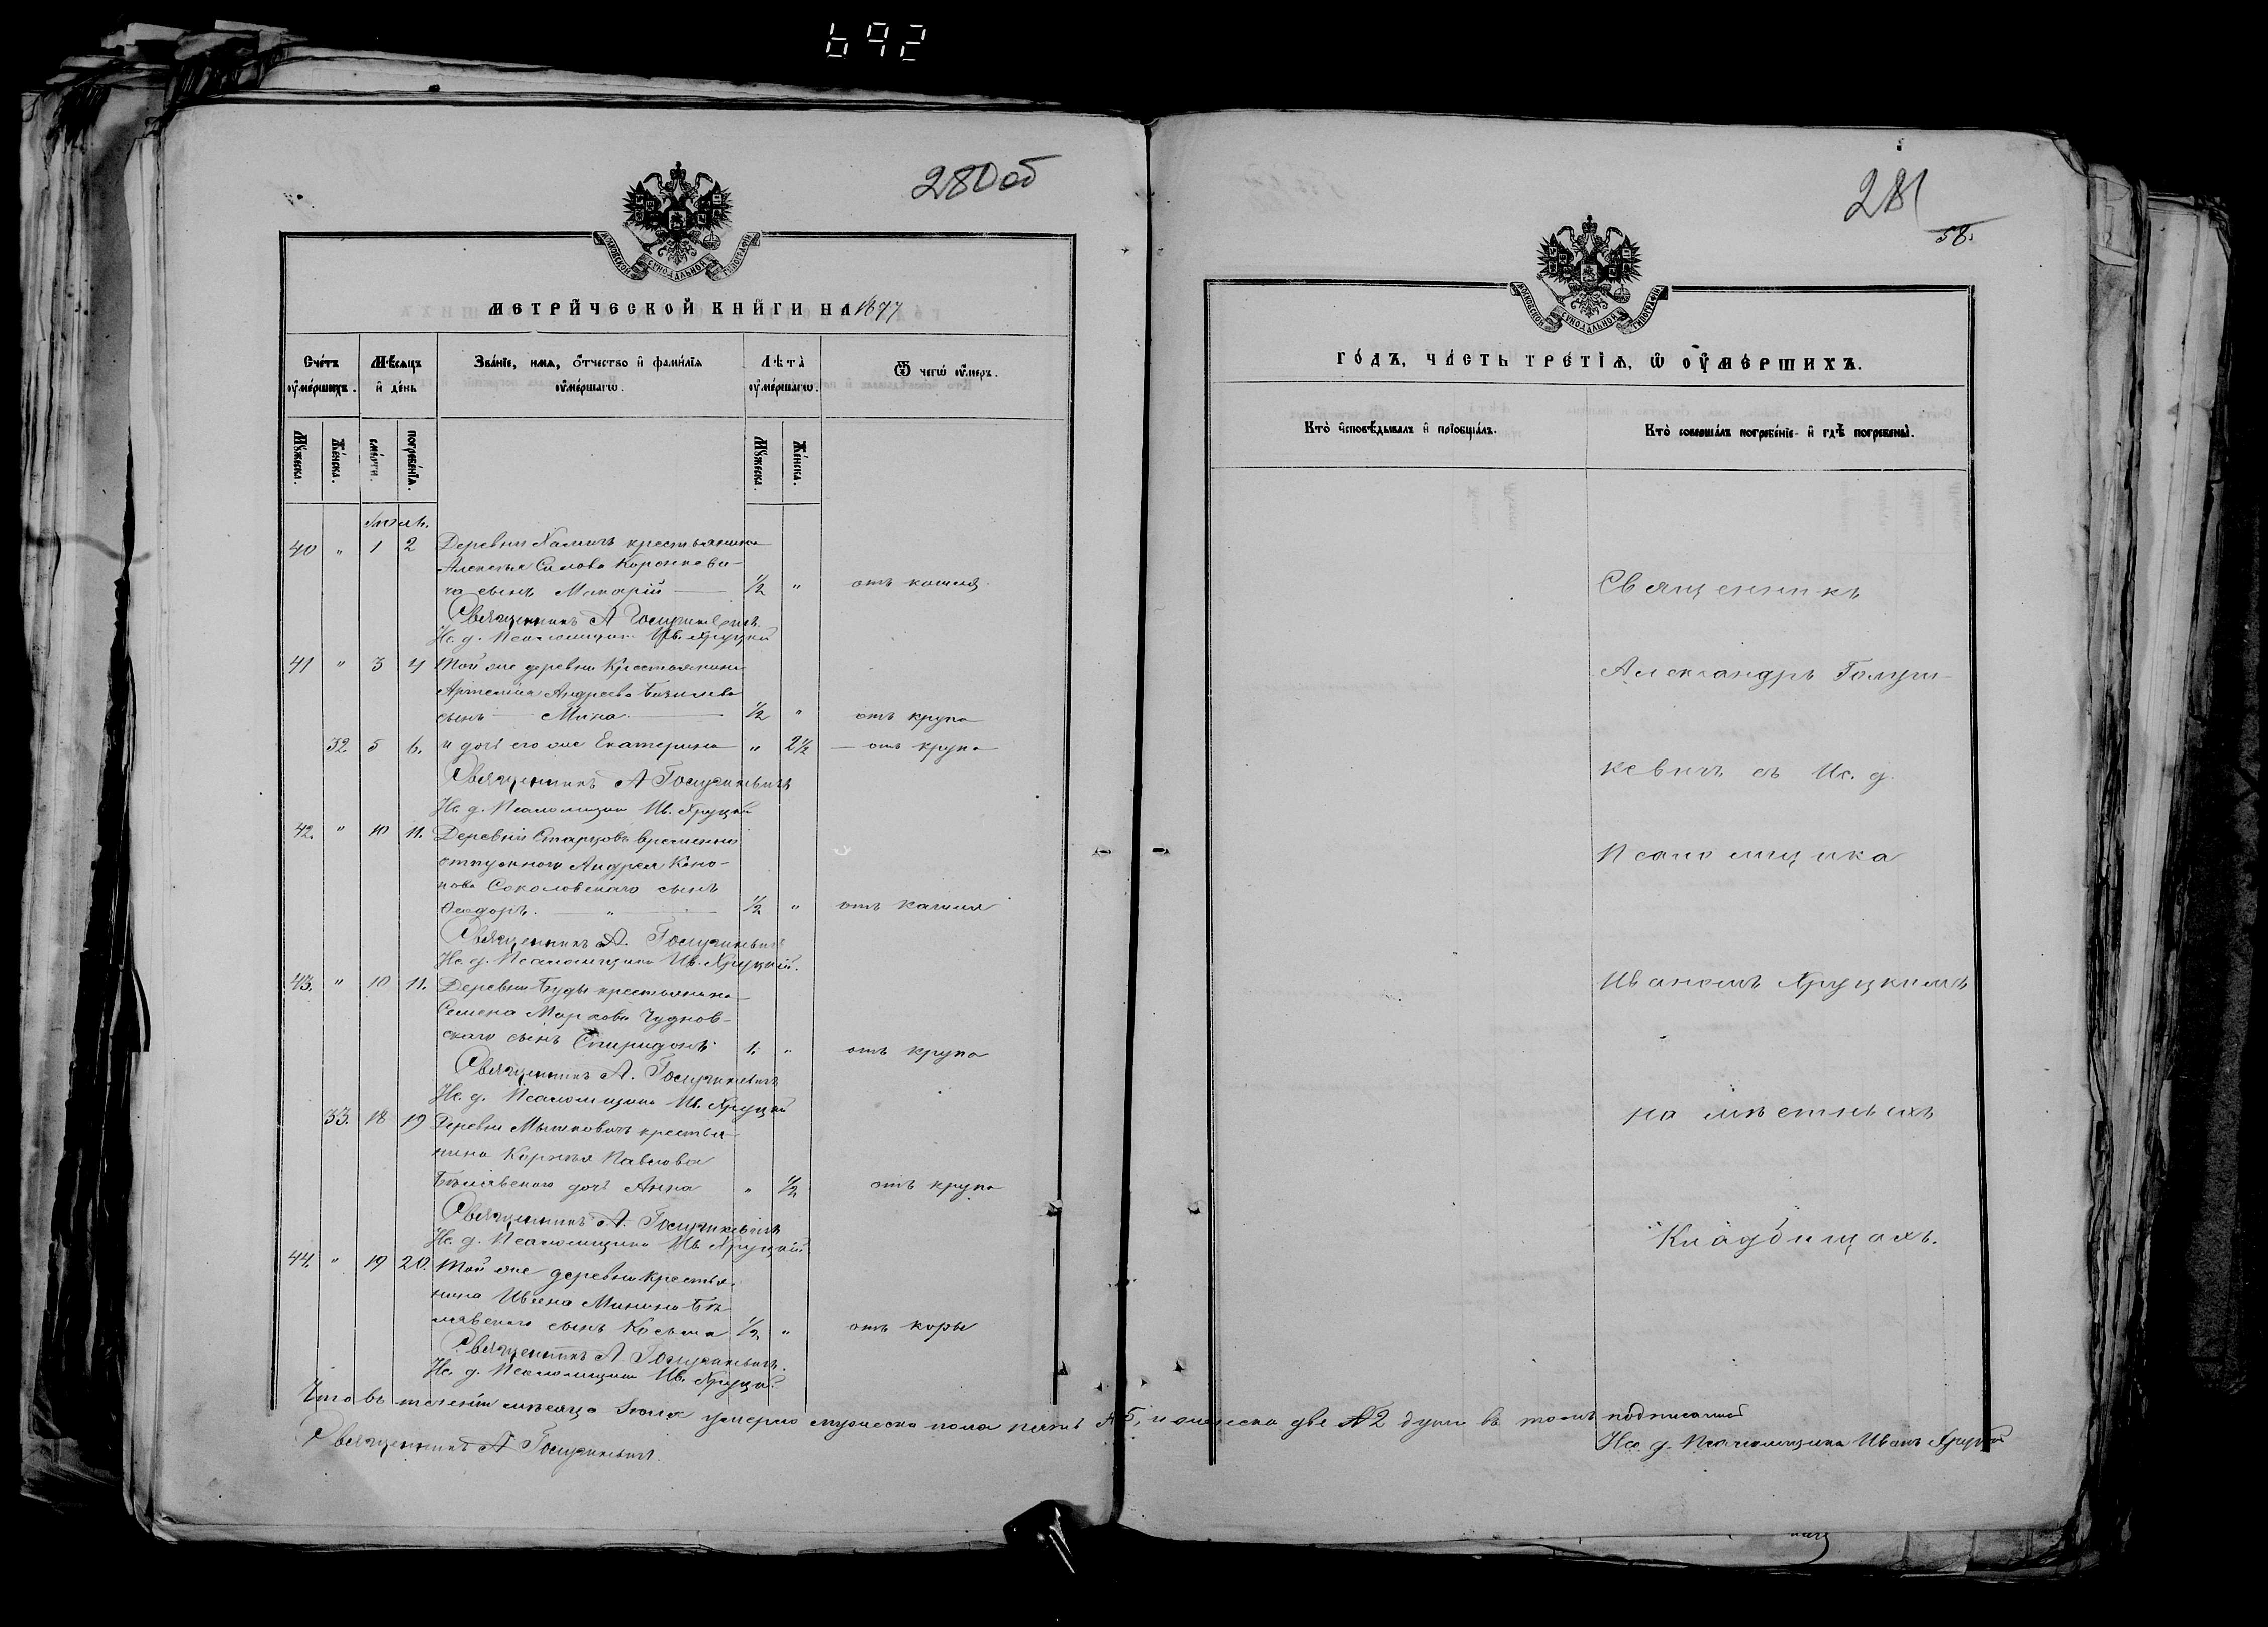 692
280 об
МОСКОВСКОЙ СѴНОДАЛЬНОЙ ТИПОГРАФІИ
МЕТРИЧЕСКОЙ КНИГИ НА 1877
Счетъ оумершихъ.
Мѣсяцъ и день
Званіе, имя, отчество и фамилія оумершагѡ.
Лѣта оумершагѡ.
Ѿ чегѡ оумеръ.
Мꙋжеска.
Женска.
смерти.
погребенія.
Мꙋжеска.
Женска.
Іюль.
40 " 1 2 Деревни крестьянина
Алексѣя Силова Коронкеви-
ча сынъ Макарій 1/2 " отъ кашля
Священникъ А Голушкевичъ
Ис. д. Псаломщика Ив. Хруцкій
41 " 3 4 Той же деревни Крестьянина
Артемія Андреева
сынъ Мина 1/2 " отъ крупа
32 5 6. и дочь его же Екатерина " 2 1/2 отъ крупа
Священникъ А Голушкевичъ
Ис. д. Псаломщика Ив. Хруцкій
42. " 10 11. Деревни временно
отпускного Андрея Коно-
нова Соколовскаго сынъ
Ѳеодоръ. " 1/2 " отъ кашля
Священникъ А. Голушкевичъ
Ис. д. Псаломщика Ив. Хруцкій.
43. " 10 11. Деревни Буды крестьянина
Семена Маркова Чуднов-
скаго сынъ Спиридонъ 1. " отъ крупа
Священникъ А. Голушкевичъ
Ис. д. Псаломщика Ив. Хруцкій
33. 18 19 Деревни Мышковичъ крестья-
нина Корнѣя Павлова
Бѣлявскаго дочь Анна " 1/2 отъ крупа
Священникъ А. Голушкевичъ
Ис. д. Псаломщика Ив. Хруцкій.
44. " 19 20. Той же деревни крестья-
нина Ивана Минина Бѣ-
лявскаго сынъ Косьма 1/2 " отъ коры
Священникъ А. Голушкевичъ.
Ис. д. Псаломщика Ив. Хруцкій
Что въ теченіи мѣсяца Іюля умерло мужеска пола пять № 5, и женска две № 2 души въ томъ подписались
Священникъ А Голушкевичъ.
Ис. д. Псаломщика Иванъ Хруцкій
281
58.
МОСКОВСКОЙ СѴНОДАЛЬНОЙ ТИПОГРАФІИ
ГОДЪ, ЧАСТЬ ТРЕТІЯ, Ѡ ОУМЕРШИХЪ.
Кто исповѣдывалъ и пріобщалъ.
Кто совершалъ погребеніе и гдѣ погребены.
Священникъ
Александръ Голуш-
кевичъ съ Ис. д.
Псаломщика
Иваномъ Хруцкимъ
на мѣстныхъ
Кладбищахъ.